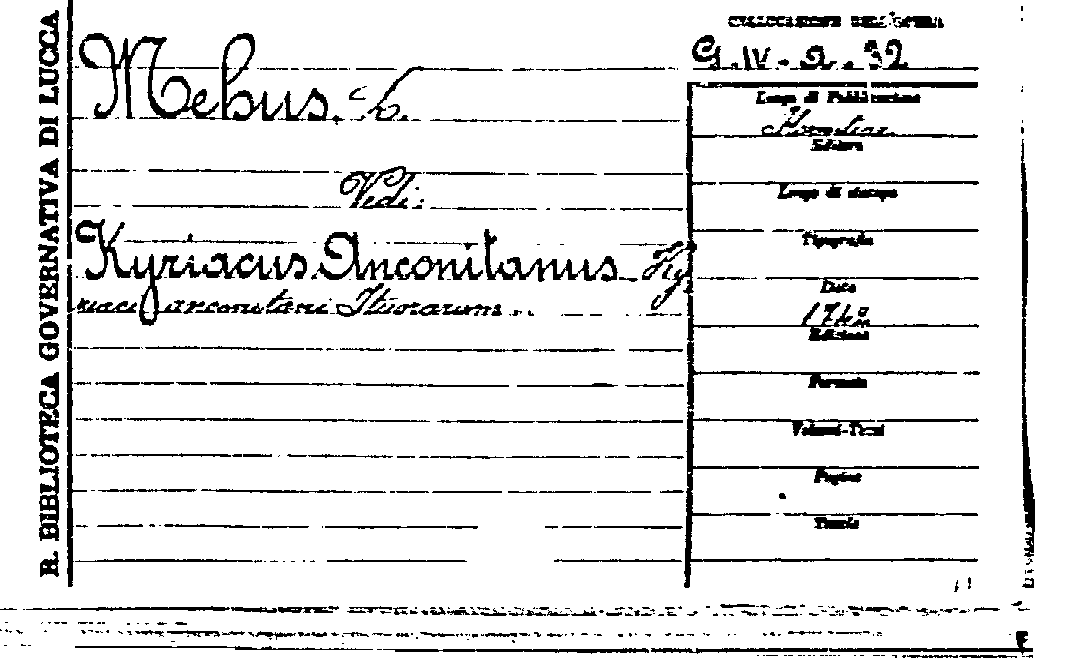 R. BIBLIOTECA GOVERNATIVA DI LUCCA
COLLOCAZIONE DELL'OPERA
G. IV. a. 32
Mehus. L.
Vedi:
Kyriacus Anconitanus Ky
riaci anconitani Itinerarium..
Luogo di Pubblicazione
Florentiae
Editore
Luogo di stampa
Tipografia
Data
Edizione
Formato
Volumi-Tomi
Pagine
Tavole